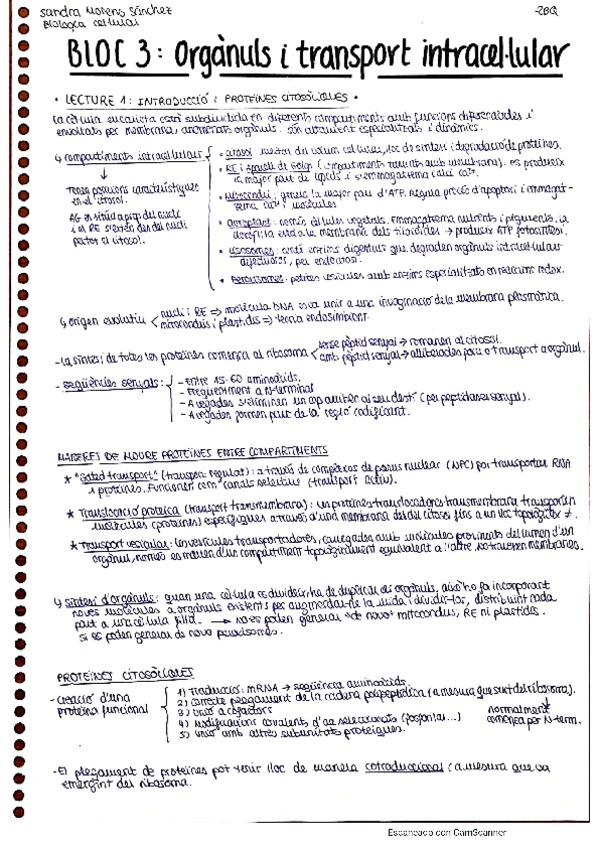 Sandra Moreno Sánchez
Biologia cel·lular
2BQ
BLOC 3: Orgànuls i transport intracel·lular
• LECTURE 1: INTRODUCCIÓ i PROTEÏNES CITOSÒLIQUES •
La cèl·lula eucariota està subdividida en diferents compartiments amb funcions diferenciades i
envoltats per membrana, anomenats orgànuls. Són altament especialitzats i dinàmics.
compartiments intracel·lulars
Tenen posicions característiques
en el citosol.
AG es situa a prop del nucli
i el RE s'estén des del nucli
per tot el citosol.
• citosol: meitat del volum cel·lular, lloc de síntesi i degradació de proteïnes.
• RE i aparell de Golgi (compartiments envoltats amb membrana): es produeix
la major part de lípids i s'emmagatzema calci Ca²⁺.
• Mitocondri: genera la major part d'ATP, regula procés d'apoptosi i emmagat-
zema Ca²⁺ i molècules
• cloroplast: només cèl·lules vegetals. Emmagatzema nutrients i pigments, la
clorofil·la està a la membrana dels tilacoides → produeix ATP fotosíntesi.
• Lisosomes: amb enzims digestius que degraden orgànuls intracel·lulars
defectuosos, per endocitosi.
• Peroxisomes: petites vesícules amb enzims especialitzats en reaccions redox.
origen evolutiu
nucli i RE ⇒ molècula DNA es va unir a una invaginació de la membrana plasmàtica.
mitocondris i plastidis ⇒ teoria endosimbiont
- La síntesi de totes les proteïnes comença al ribosoma
sense pèptid senyal → romanen al citosol.
amb pèptid senyal → alliberades para o transport a orgànul.
- seqüències senyals:
- Entre 15-60 aminoàcids.
- Freqüentment a N-terminal
- A vegades s'eliminen un cop arriben al seu destí (per peptidases senyal).
- A vegades formen part de la regió codificant.
MANERES DE MOURE PROTEÏNES ENTRE COMPARTIMENTS
* "Gated transport" (transport regulat): a través de complexos de porus nuclear (NPC) per transportar RNA
i proteïnes. Funcionen com canals selectius (transport actiu).
* Translocació proteica (transport transmembrana): les proteïnes translocadores transmembrana transporten
molècules (proteïnes) específiques a través d'una membrana des del citosol fins a un lloc topològic ≠.
* Transport vesicular: les vesícules transportadores, carregades amb molècules provinents del lumen d'un
orgànul, només es mouen d'un compartiment topològicament equivalent a l'altre, no travessen membranes.
síntesi d'orgànuls: quan una cèl·lula es divideix ha de duplicar els orgànuls, això ho fa incorporant
noves molècules a orgànuls existents per augmentar-ne la mida i dividir-los, distribuint cada
part a una cèl·lula filla. → no es poden generar "de novo" mitocondris, RE ni plastidis.
si es poden generar de novo peroxisomes.
PROTEÏNES CITOSÒLIQUES
- Creació d'una
proteïna funcional
1) Traducció: mRNA → seqüència aminoàcids.
2) Correcte plegament de la cadena polipeptídica (a mesura que surt del ribosoma).
3) Unió a cofactors
4) Modificacions covalents d'aa seleccionats (fosforilar...)
5) Unió amb altres subunitats proteiques.
normalment
comença per N-term.
- El plegament de proteïnes pot tenir lloc de manera cotraduccional (a mesura que va
emergint del ribosoma.
Escaneado con CamScanner